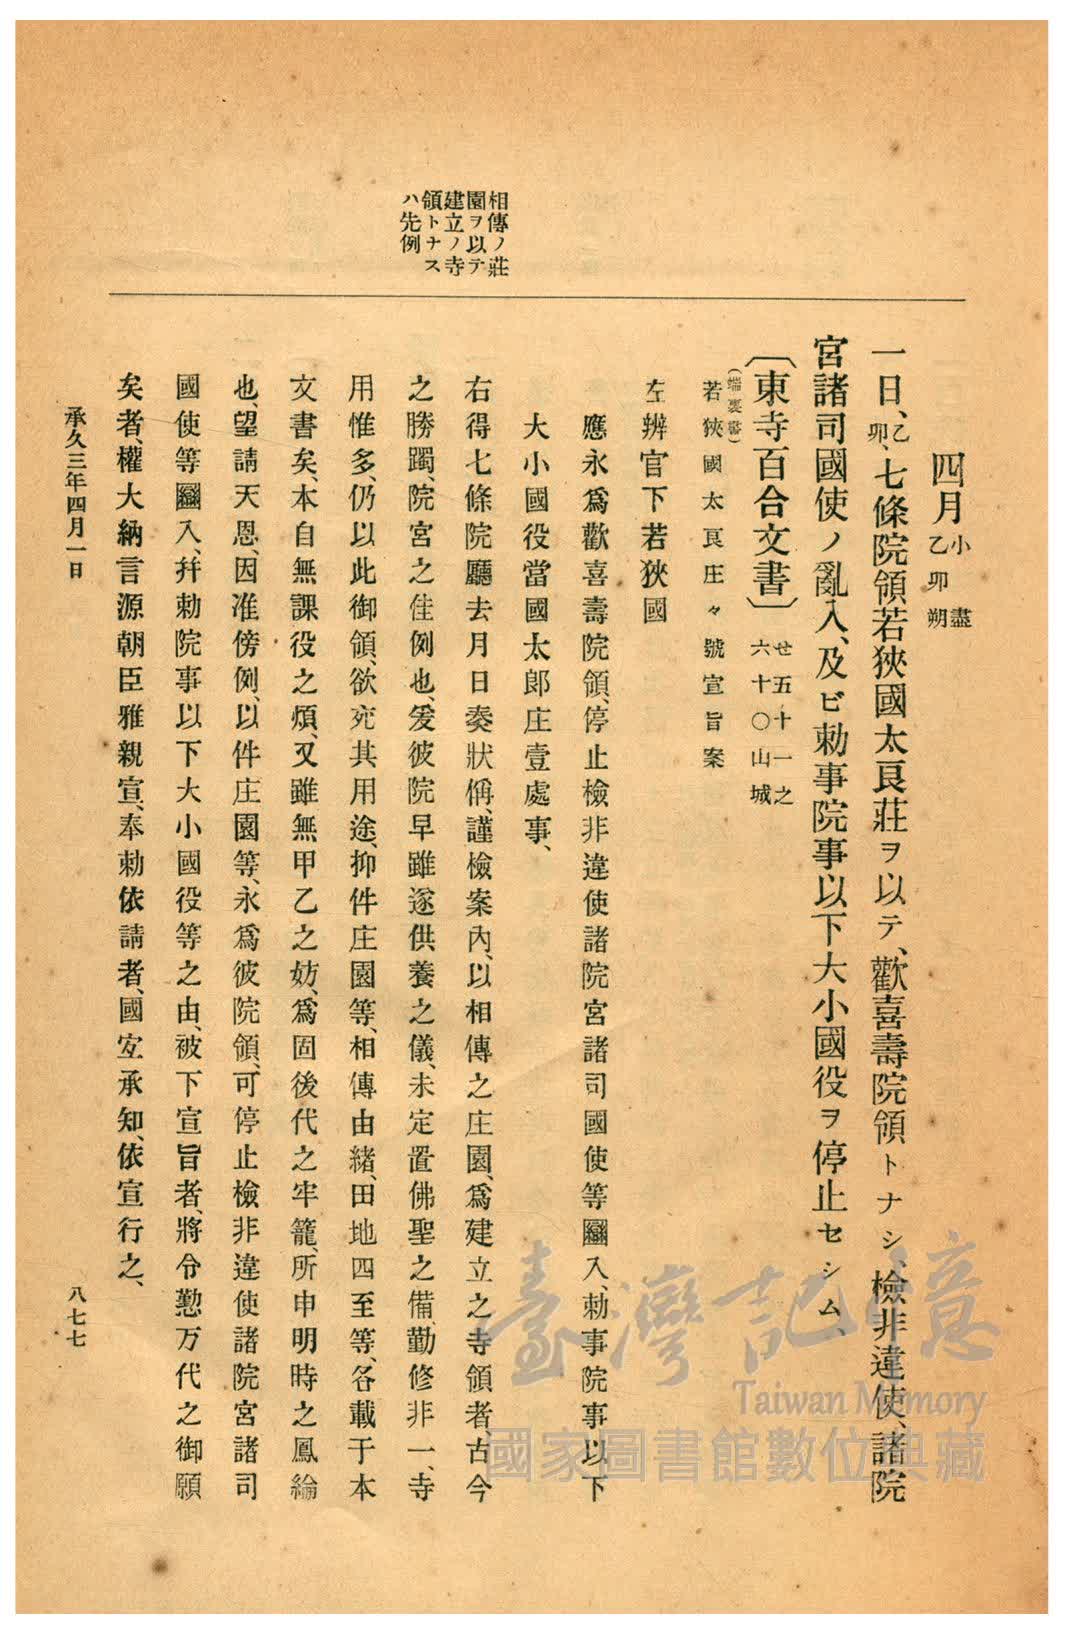 相傳ノ莊
園ヲ以テ
建立ノ寺
領トナス
ハ先例
四月小盡
乙卯朔
一日、乙卯、七條院領若狹國太良莊ヲ以テ、歡喜壽院領トナシ、檢非違使、諸院
宮諸司國使ノ亂入、及ビ勅事院事以下大小國役ヲ停止セシム、
〔東寺百合文書〕せ五十一之
六十〇山城
(端裏書)
若狹國太良庄々號宣旨案
左辨官下若狹國
應永爲歡喜壽院領、停止檢非違使諸院宮諸司國使等亂入、勅事院事以下
大小國役當國太郎庄壹處事、
右得七條院廳去月日奏狀偁、謹檢案內、以相傳之庄園、爲建立之寺領者、古今
之勝躅、院宮之佳例也、爰彼院早雖遂供養之儀、未定置佛聖之備、勤修非一、寺
用惟多、仍以此御領、欲充其用途、抑件庄園等、相傳由緒、田地四至等、各載于本
文書矣、本自無課役之煩、又雖無甲乙之妨、爲固後代之牢籠、所申明時之鳳綸
也、望請天恩、因准傍例、以件庄園等、永爲彼院領、可停止檢非違使諸院宮諸司
國使等亂入、幷勅院事以下大小國役等之由、被下宣旨者、將令懃万代之御願
矣者、權大納言源朝臣雅親宣、奉勅依請者、國宜承知、依宣行之、
承久三年四月一日
八七七
臺灣記憶
Taiwan Memory
國家圖書館數位典藏